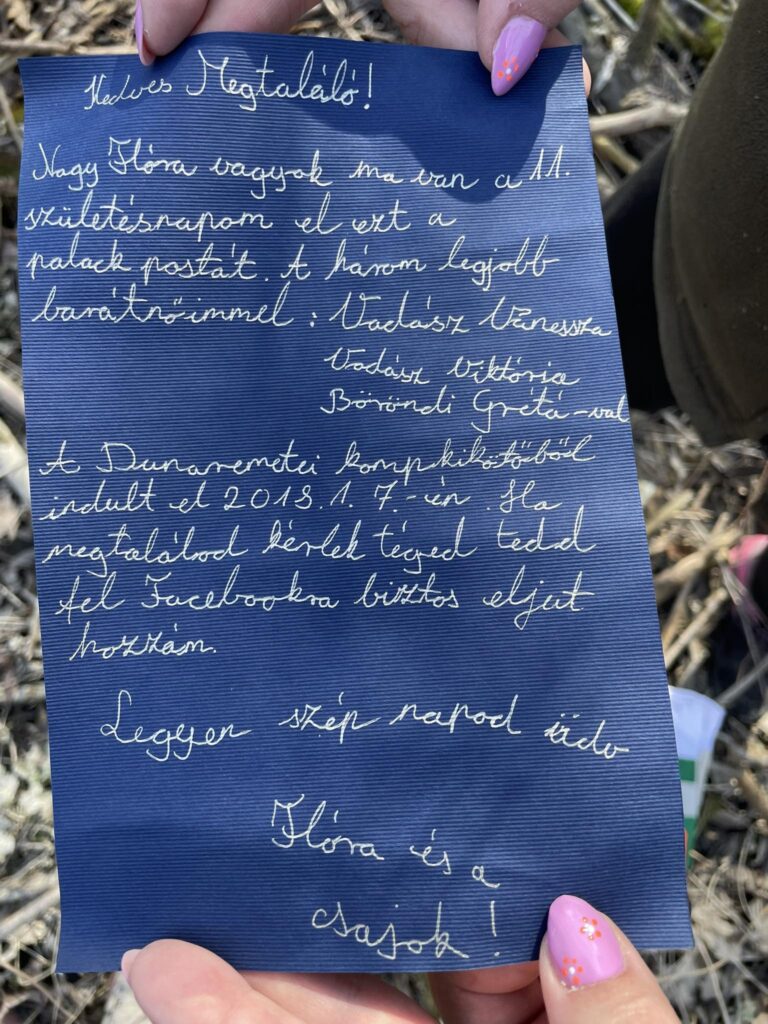 Kedves Megtaláló!
Nagy Flóra vagyok ma van a 11.
születésnapom el ezt a
palack postát. A három legjobb
barátnőimmel : Vadász Vanessza
Vadász Viktória
Böröndi Grétá-val
A Dunaremetei kompkikötőből
indult el 2018.1.7.-én. Ha
megtalálod kérlek téged tedd
fel Facebookra biztos eljut
hozzám.
Legyen szép napod üdv
Flóra és a
csajok!